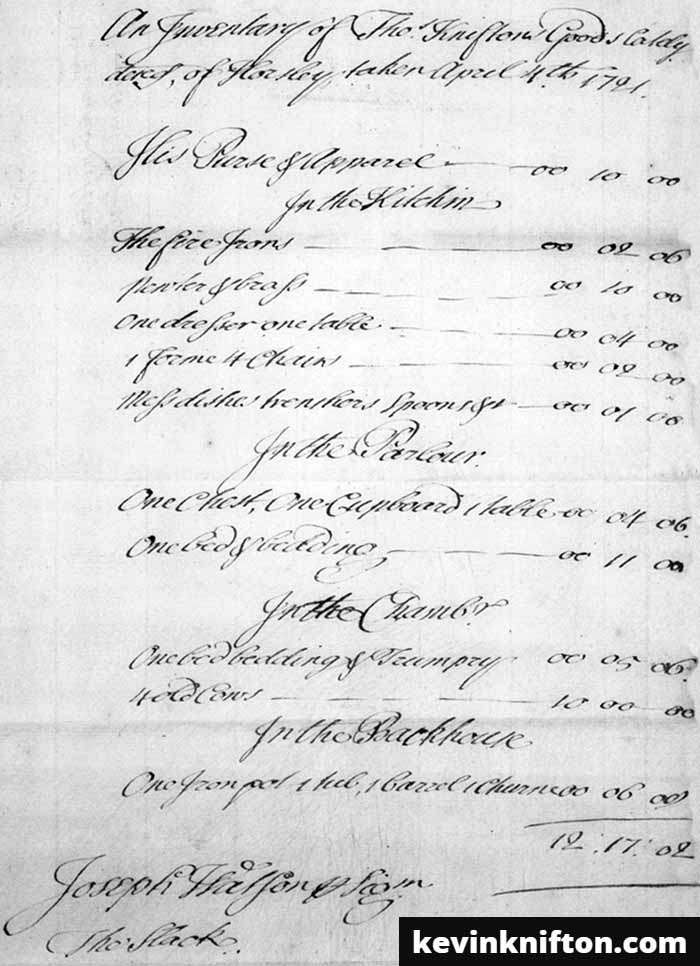 An Inventary of Tho: Kniftons Goods Lately
deces'd, of Horsley taken April 4th 1721.
His Purse & Apparel 00 10 00
In the Kitchin
The fire Irons 00 02 06
Pewter & brass 00 10 00
One dresser one table 00 04 00
1 forme 4 Chairs 00 02 00
Mess dishes trenchers Spoons &c 00 01 00
In the Parlour.
One Chest, One Cupboard 1 table 00 04 06.
One bed & bedding 00 11 00
In the Chambr
One bed bedding & Trumpry 00 05 06.
4 old Cows 10 00 00
In the Backhouse
One Iron pot 1 tub, 1 barrel 1 Churne 00 06 08
12 : 17 : 02
Joseph
Tho: Slack.
kevinknifton.com